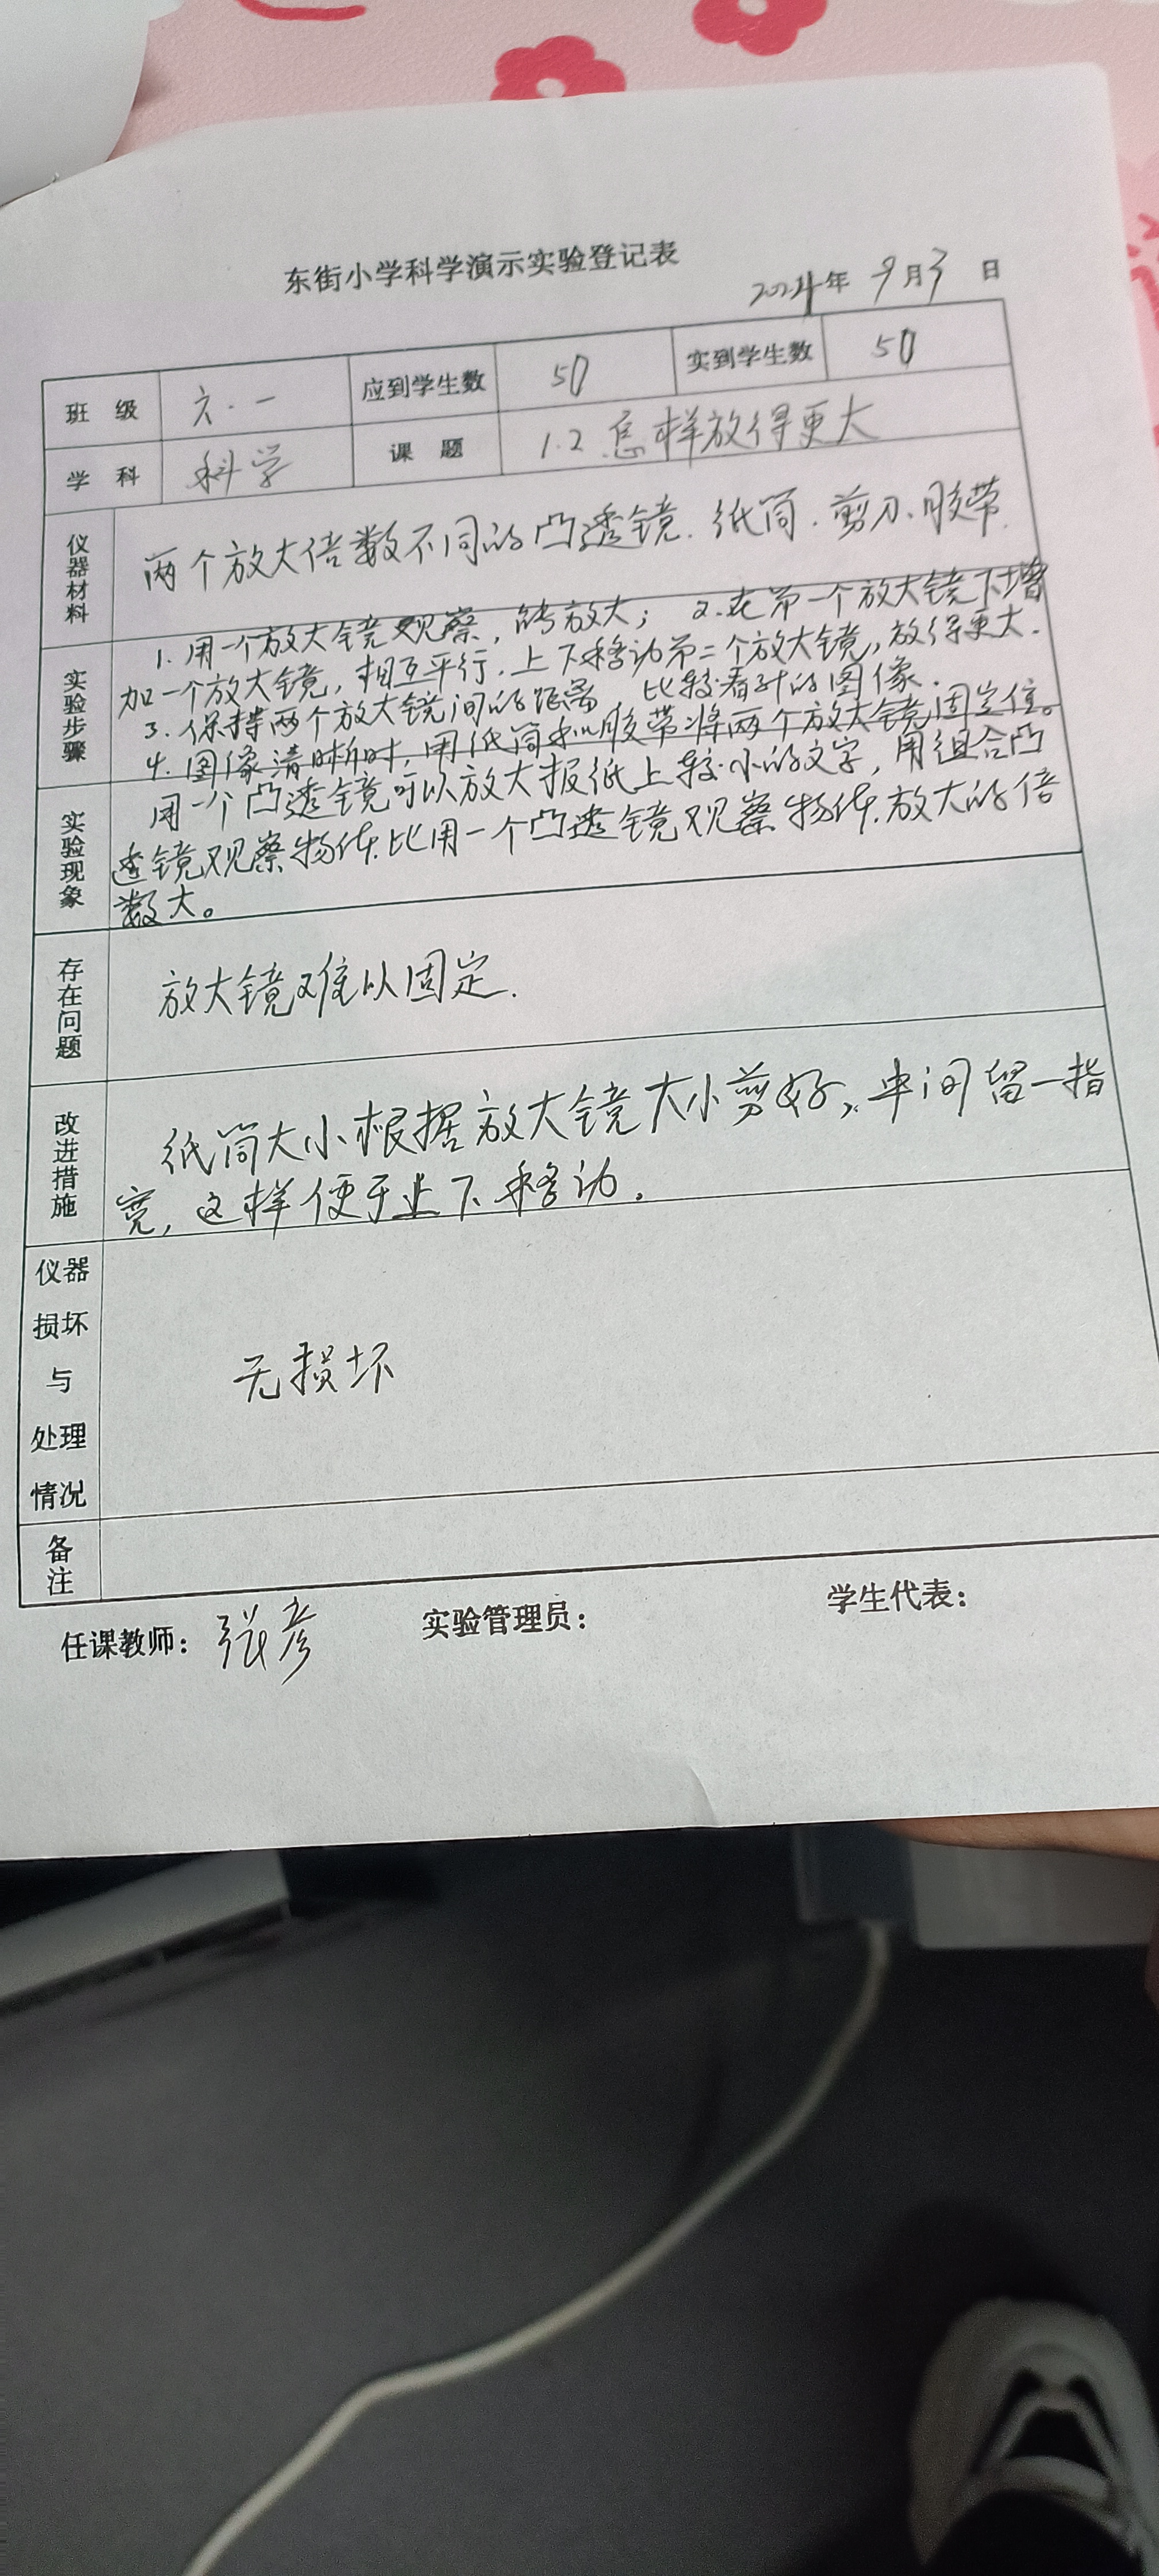 东街小学科学演示实验登记表
2024年 9月3 日
班 级 六.一 应到学生数 50 实到学生数 50
学 科 科学 课 题 1.2.怎样放得更大
仪器材料 两个放大倍数不同的凸透镜、纸筒、剪刀、胶带.
实验步骤 1. 用一个放大镜观察，能放大； 2. 在第一个放大镜下增
加一个放大镜，相互平行，上下移动第二个放大镜，放得更大.
3. 保持两个放大镜间的距离 比较看到的图像.
4. 图像清晰时，用纸筒和胶带将两个放大镜固定住。
实验现象 用一个凸透镜可以放大报纸上较小的文字，用组合凸
透镜观察物体.比用一个凸透镜观察物体.放大的倍
数大。
存在问题 放大镜难以固定.
改进措施 纸筒大小根据放大镜大小剪好，中间留一指
宽，这样便于上下移动.
仪器损坏与处理情况 无损坏
备注
任课教师：张彦 实验管理员： 学生代表：